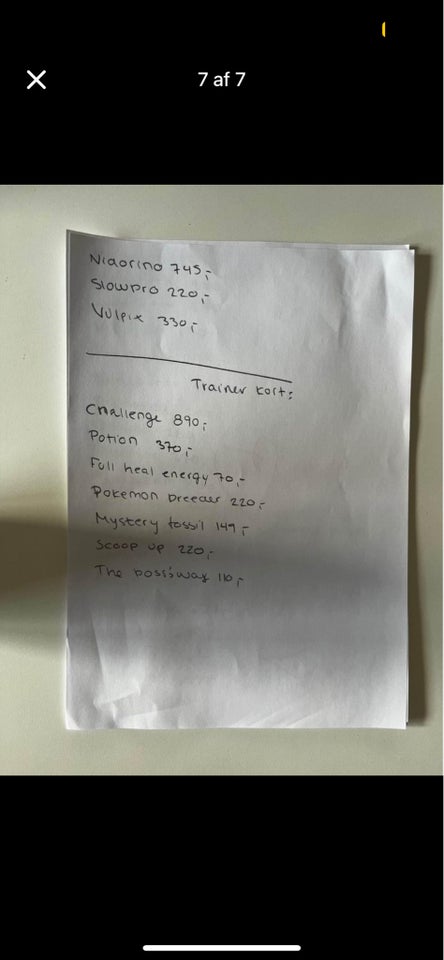 7 af 7
Niaorino 745,-
Slowpro 220,-
Vulpix 330,-
Trainer kort:
Challenge 890,-
Potion 370,-
Full heal energy 70,-
Pokemon breeder 220,-
Mystery fossil 149,-
Scoop up 220,-
The boss's way 110,-